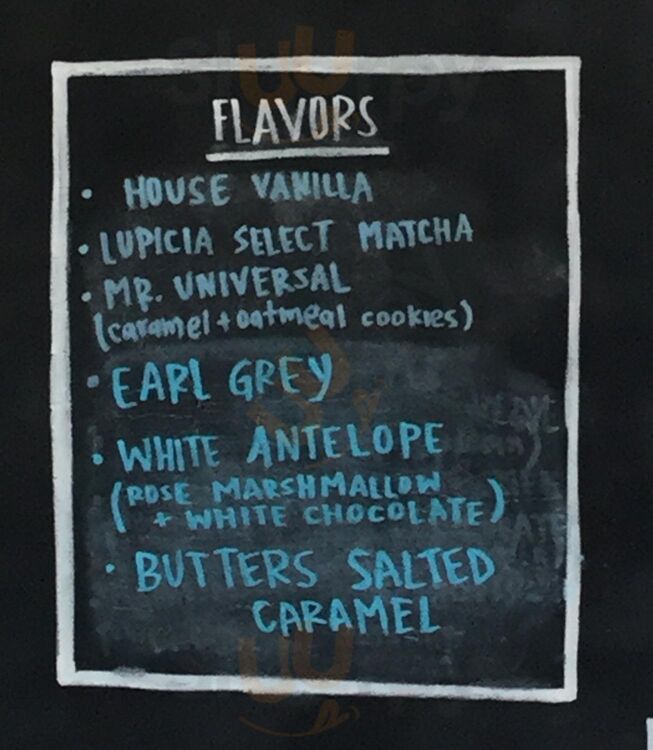 FLAVORS
• HOUSE VANILLA
• LUPICIA SELECT MATCHA
• MR. UNIVERSAL
(caramel + oatmeal cookies)
• EARL GREY
• WHITE ANTELOPE
(ROSE MARSHMALLOW
+ WHITE CHOCOLATE)
• BUTTERS SALTED
CARAMEL